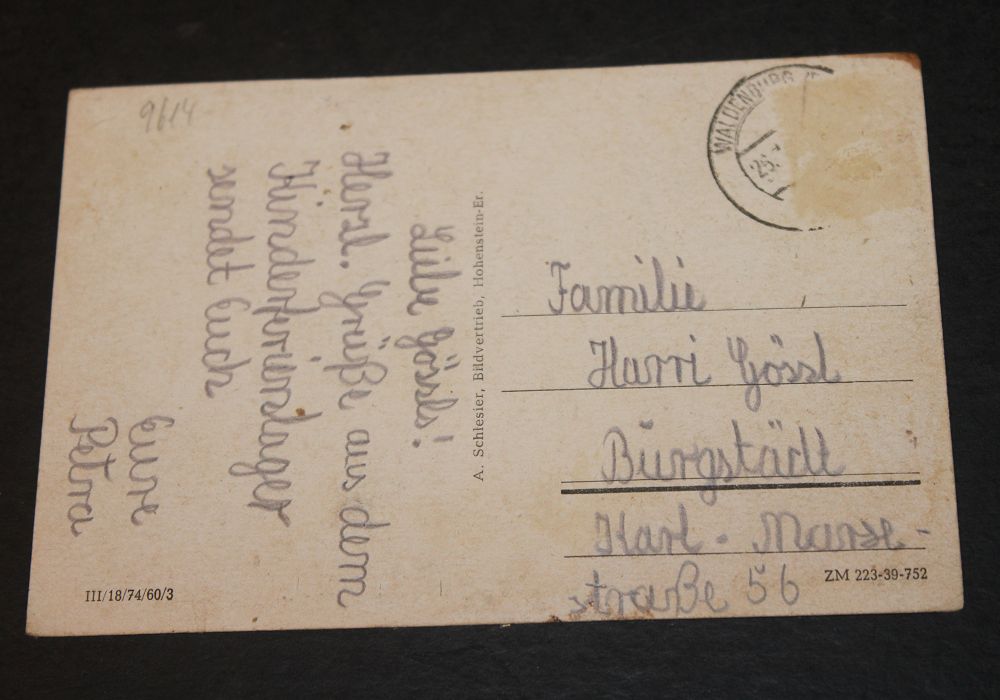 9614
Liebe Gössls!
Herzl. Grüße aus dem
Kinderferienlager
sendet Euch
Eure
Petra
A. Schlesier, Bildvertrieb, Hohenstein-Er.
WALDENBURG
25.
Familie
Harri Gössl
Burgstädt
Karl-Marx-
straße 56
III/18/74/60/3
ZM 223-39-752